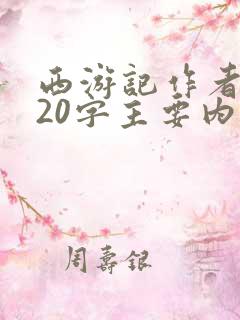 西游記作者
20字主要内
周壽銀